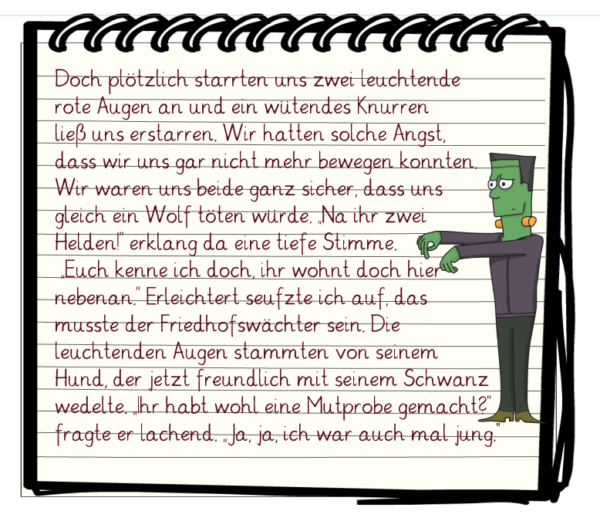 Doch plötzlich starrten uns zwei leuchtende
rote Augen an und ein wütendes Knurren
ließ uns erstarren. Wir hatten solche Angst,
dass wir uns gar nicht mehr bewegen konnten.
Wir waren uns beide ganz sicher, dass uns
gleich ein Wolf töten würde. „Na ihr zwei
Helden!" erklang da eine tiefe Stimme.
„Euch kenne ich doch, ihr wohnt doch hier
nebenan." Erleichtert seufzte ich auf, das
musste der Friedhofswächter sein. Die
leuchtenden Augen stammten von seinem
Hund, der jetzt freundlich mit seinem Schwanz
wedelte. „Ihr habt wohl eine Mutprobe gemacht?"
fragte er lachend. „Ja, ja, ich war auch mal jung."